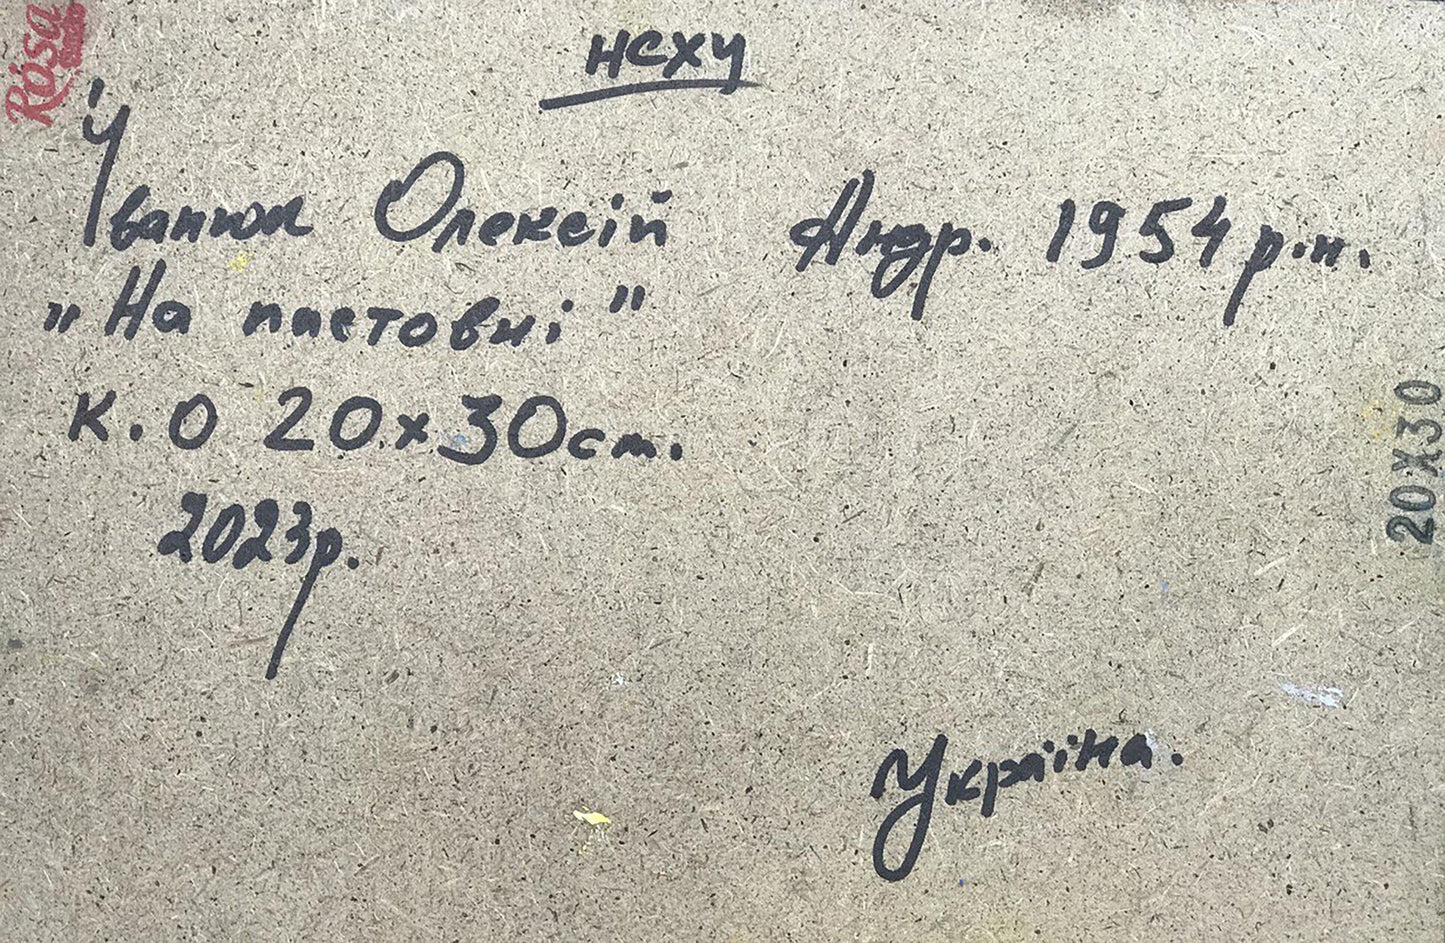 Rosa
нсху
Іванюк Олексій Андр. 1954 р.н.
„На пастовні"
к.о 20х30см.
2023р.
20X30
Україна.